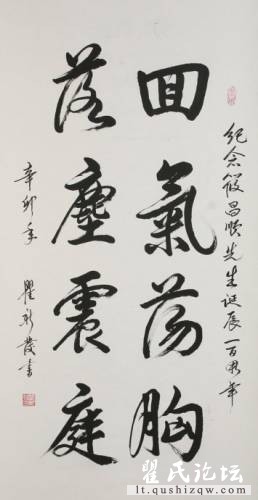 紀念筱昌順先生誕辰一百周年
回氣蕩胸
落塵震庭
辛卯年
瞿 發書
瞿氏论坛
lt.qushizqw.com